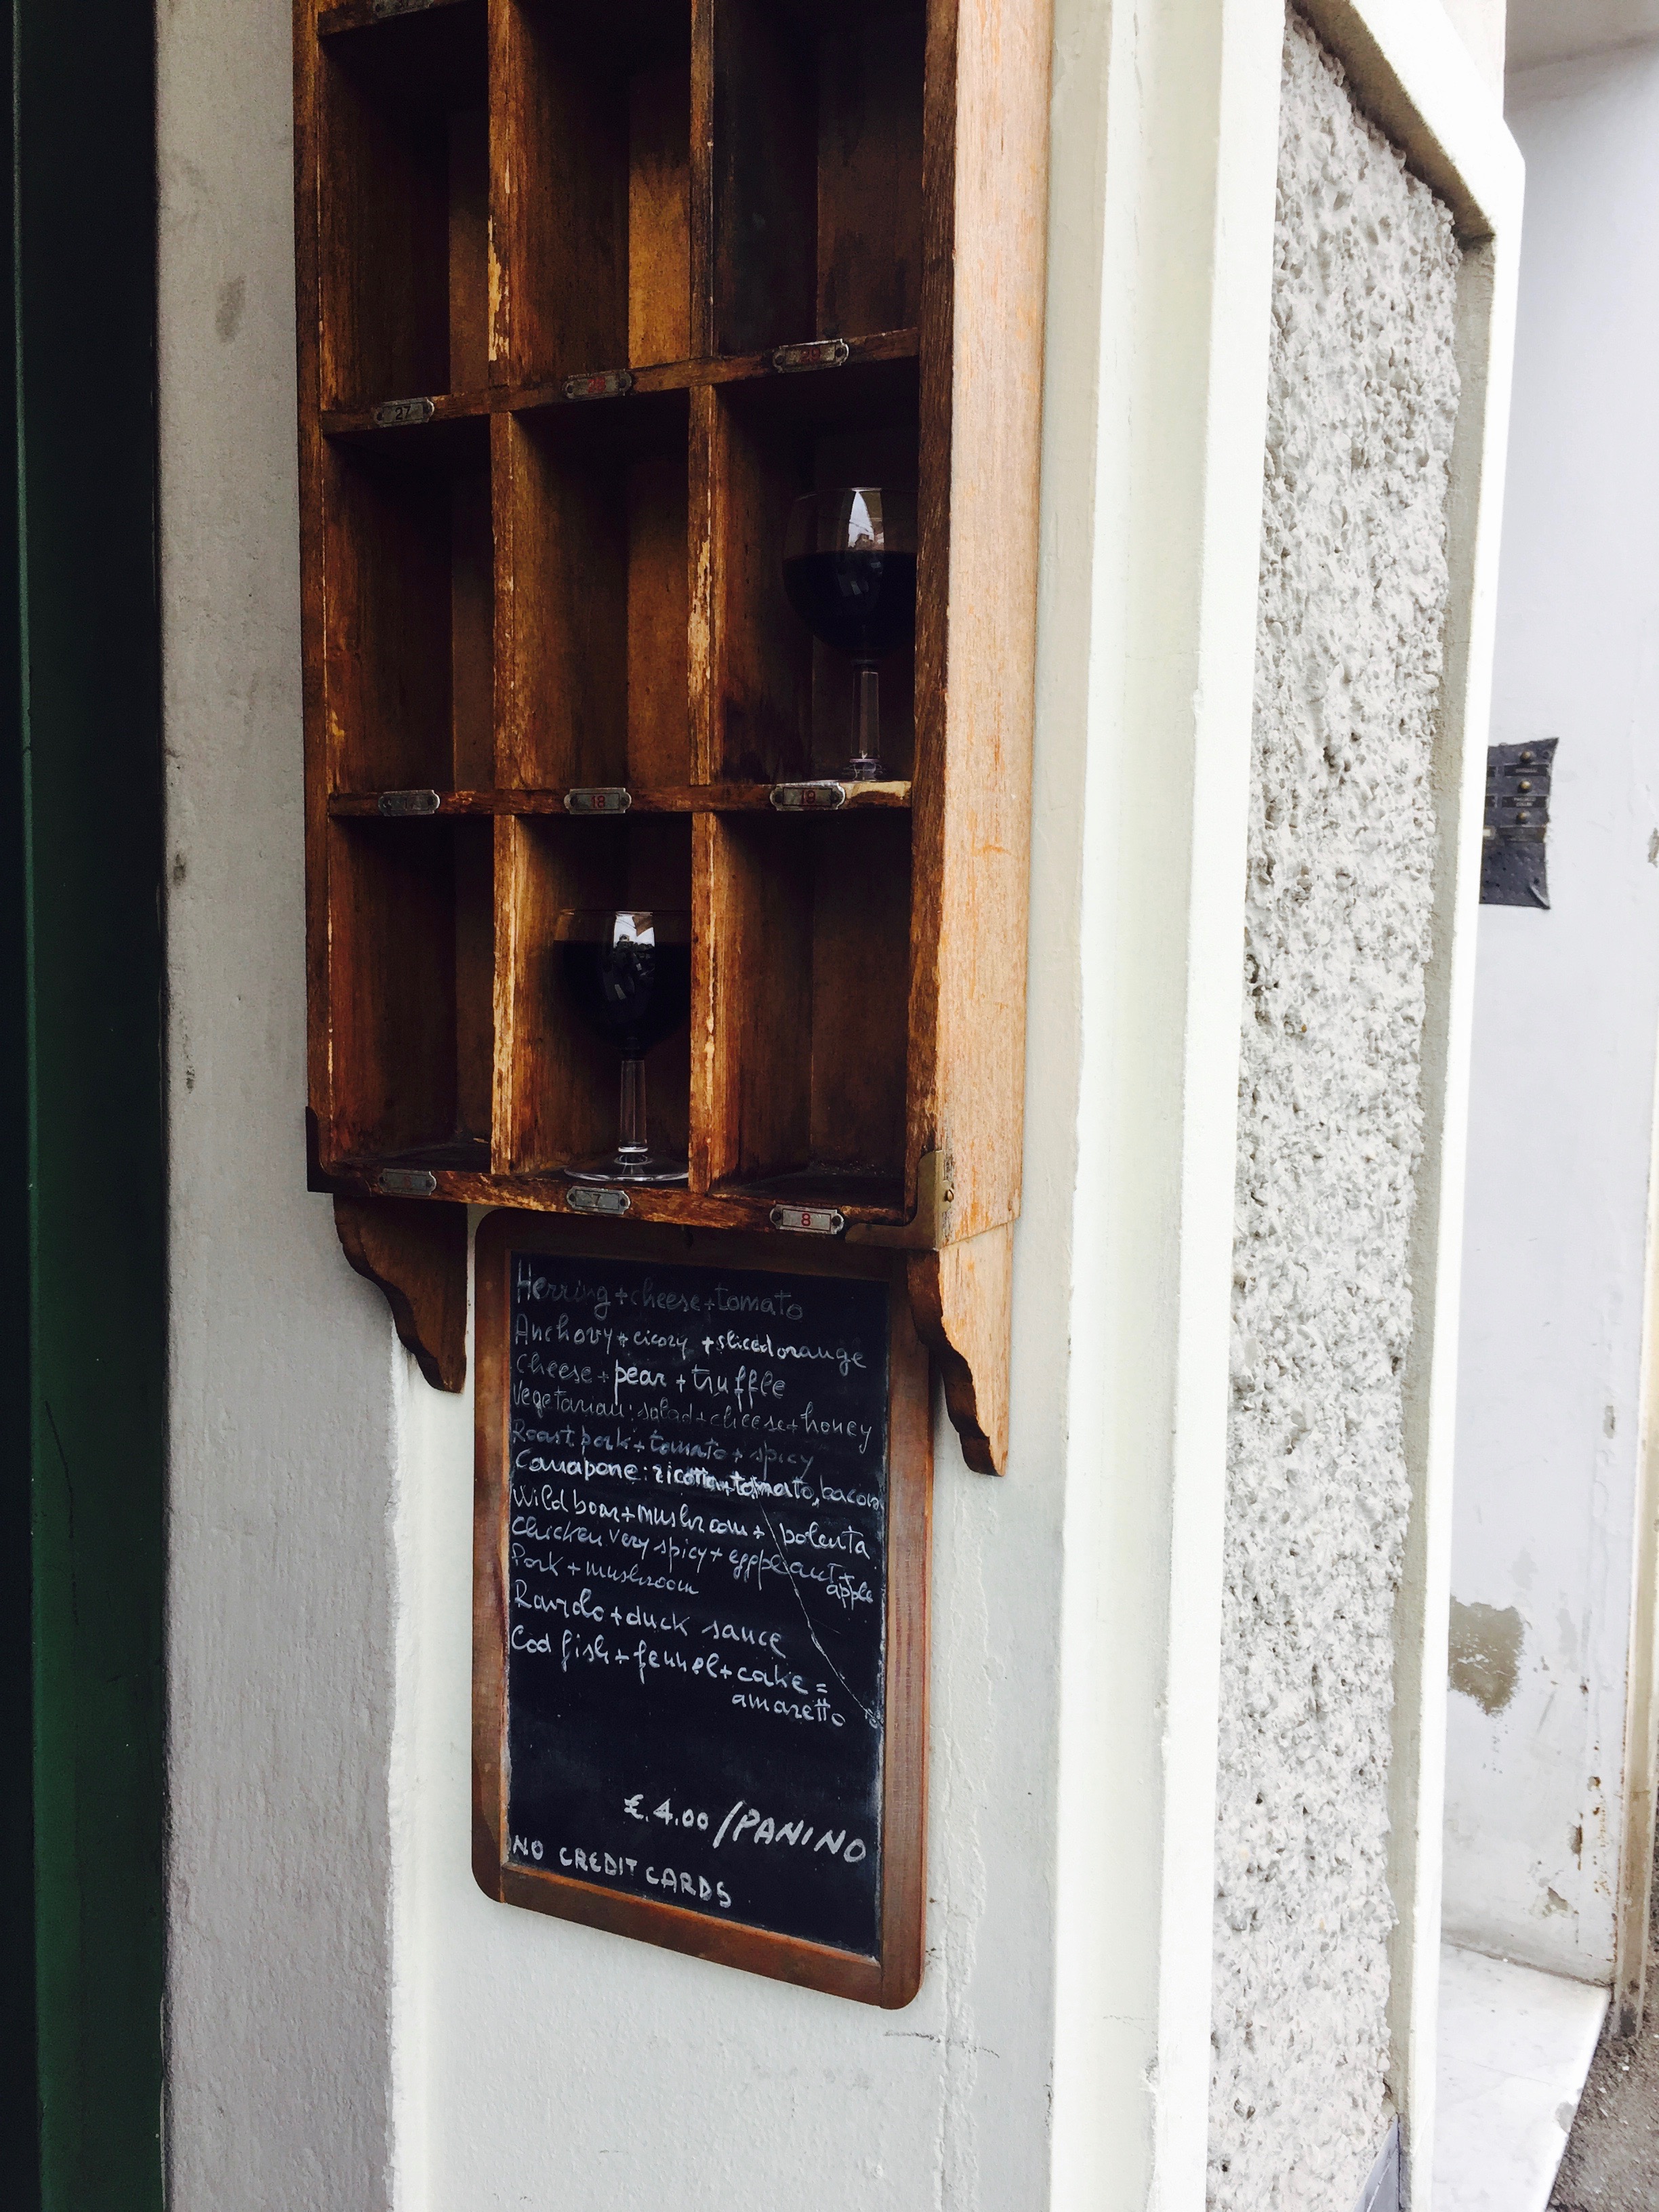 27
28
29
18
19
7
8
Herring + cheese + tomato
Anchovy + cicory + sliced orange
Cheese + pear + truffle
Vegetarian: salad + cheese + honey
Roast pork + tomato + spicy
Canapone: ricotta + tomato, bacon
Wild boar + mushroom + polenta
Chicken very spicy + eggpeant +
apple
Pork + mushroom
+ duck sauce
Cod fish + fennel + cake =
amaretto
€.4.00/PANINO
NO CREDIT CARDS